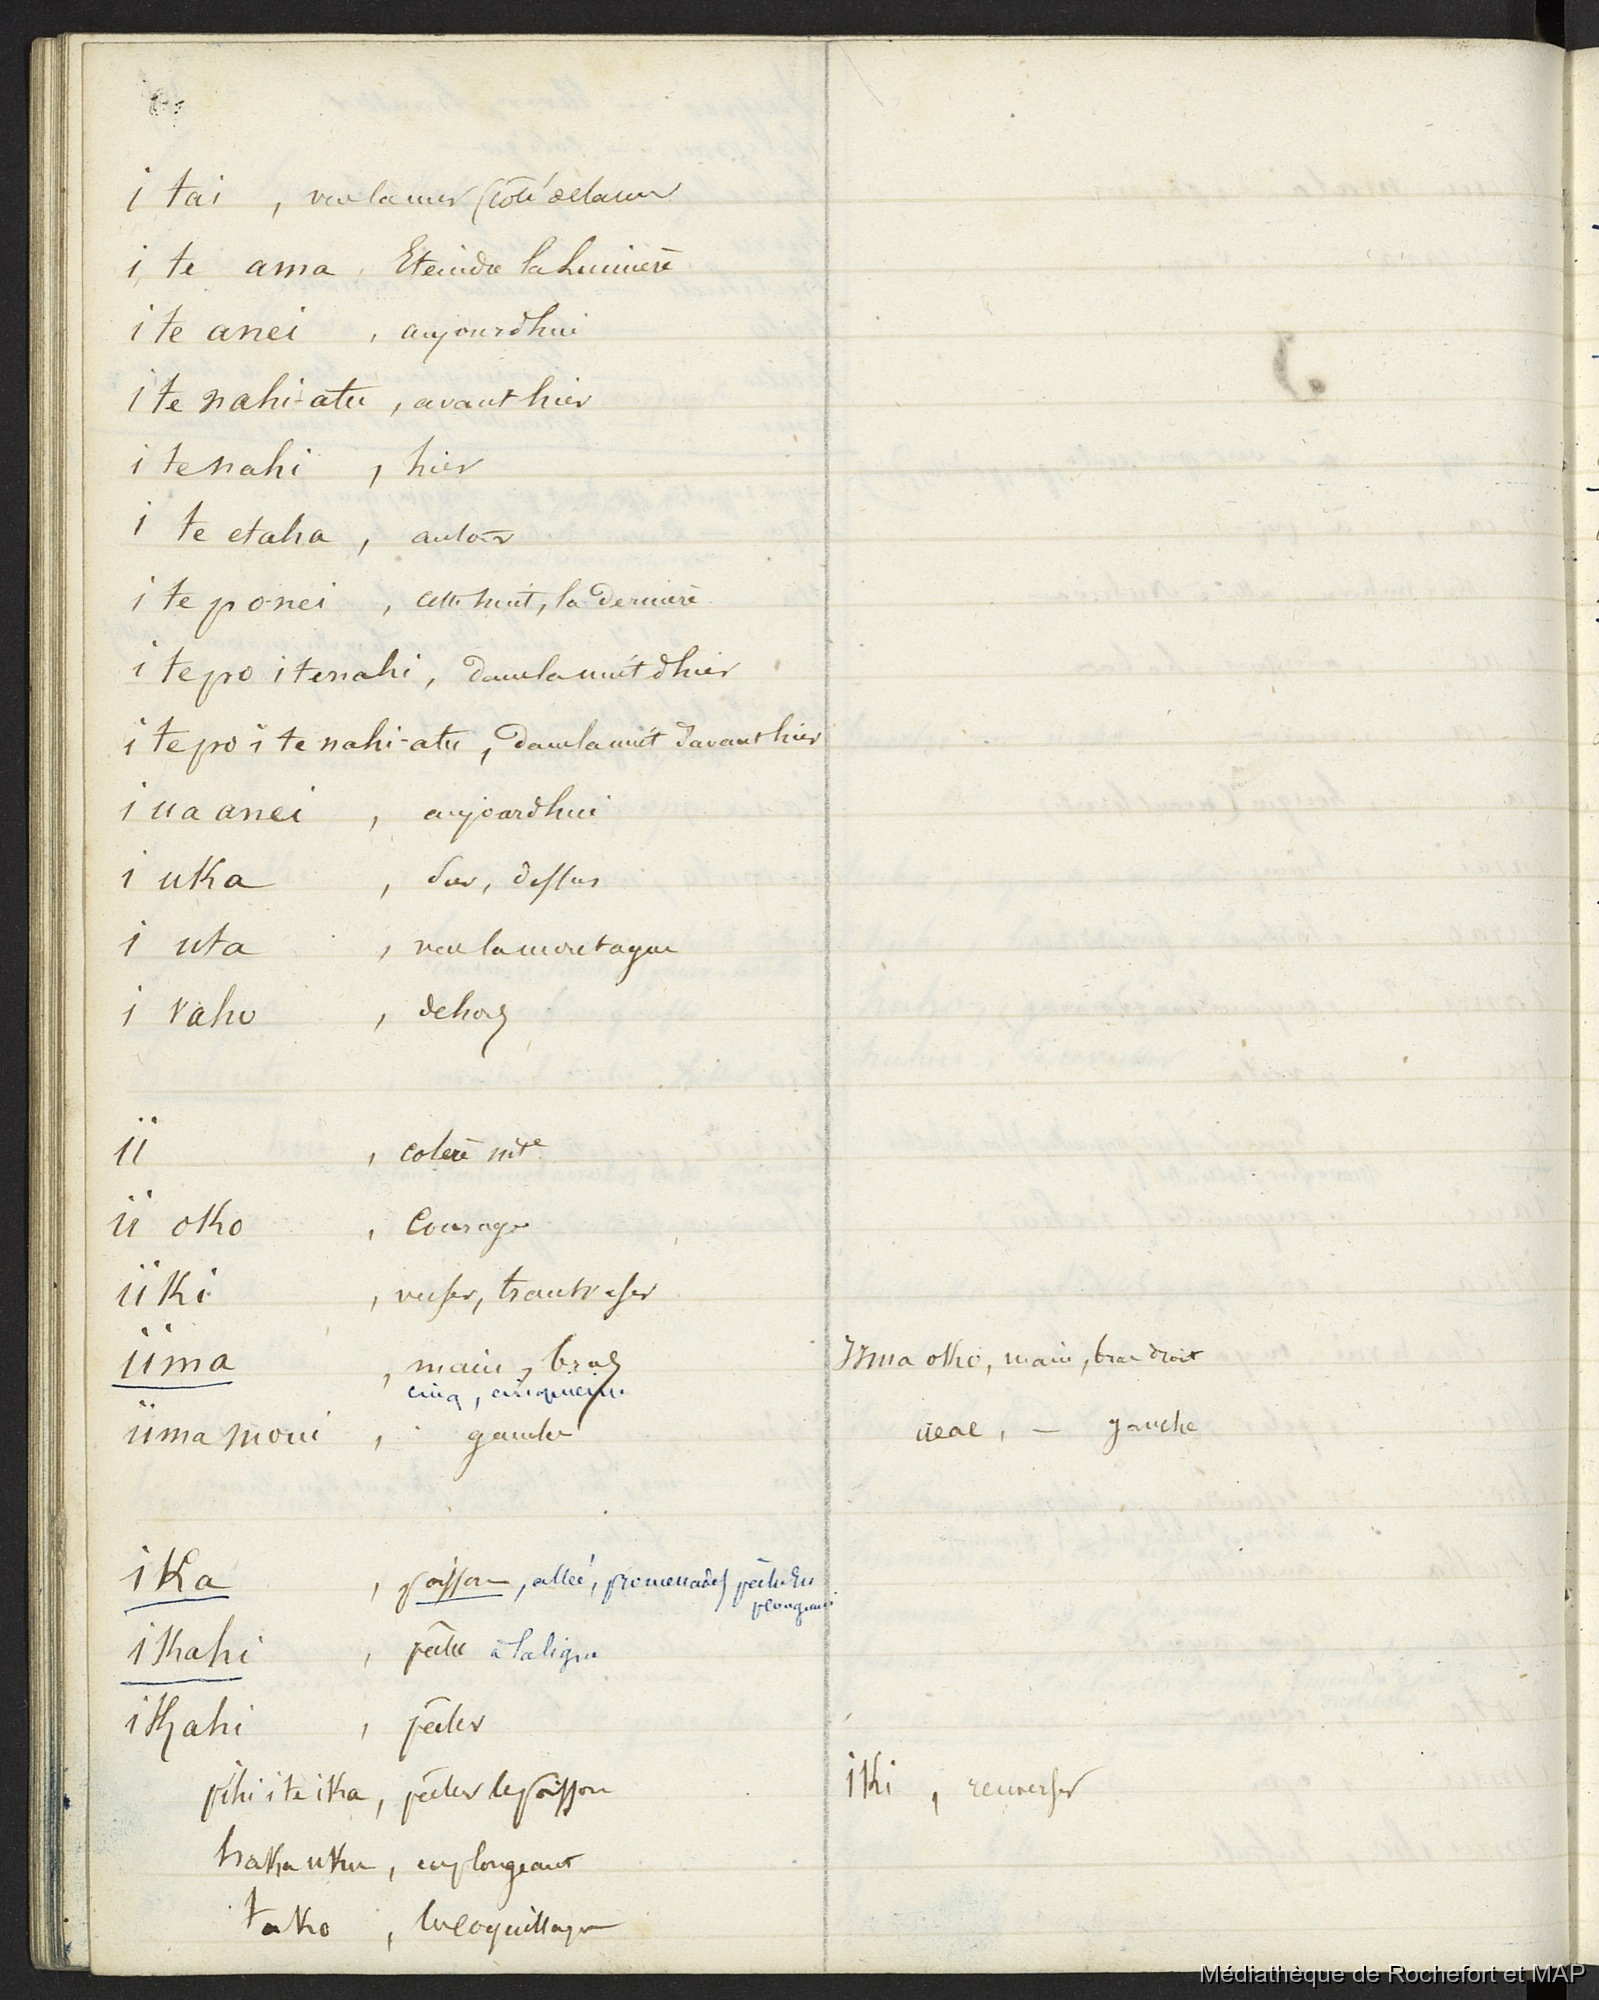 i tai , vers la mer (côté de la mer
i te ama , Eteindre la Lumière
i te anei , aujourdhui
i te nahi-atu , avant hier
i tenahi , hier
i te etaha , autour
i te po-nei , cette nuit, la dernière
i tepo i tenahi , dans la nuit dhier
i tepo i te nahi-atu , dans la nuit davant hier
i ua anei , aujourdhui
i uka , Sur, dessus
i uta , vers la montagne
i vaho , dehors
ii , colère
ii oko , Courage
iiki , verser, transverser
iima , main, bras
cinq, cinquième
Iima oko, main, bras droit
iima moui , gauche
, — gauche
ika , poisson, allée, promenades pêche en
plongeant
ikahi , pêche à la ligne
ikahi , pêcher
pihi i te ika , pêcher le poisson
iki , renverser
haka uku , en plongeant
tako , le coquillage
Médiathèque de Rochefort et MAP